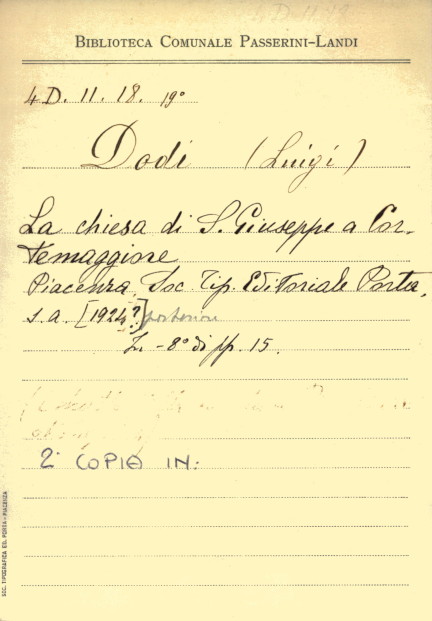 4 D. 11. 18
BIBLIOTECA COMUNALE PASSERINI-LANDI
4 D. 11. 18. 19°
Dodi (Luigi)
La chiesa di S. Giuseppe a Cor-
temaggiore
Piacenza, Soc. Tip. Editoriale Porta,
s. a. [1924?] posteriore
L. - 8° di pp. 15.
2ª COPIA IN:
SOC. TIPOGRAFICA ED. PORTA - PIACENZA